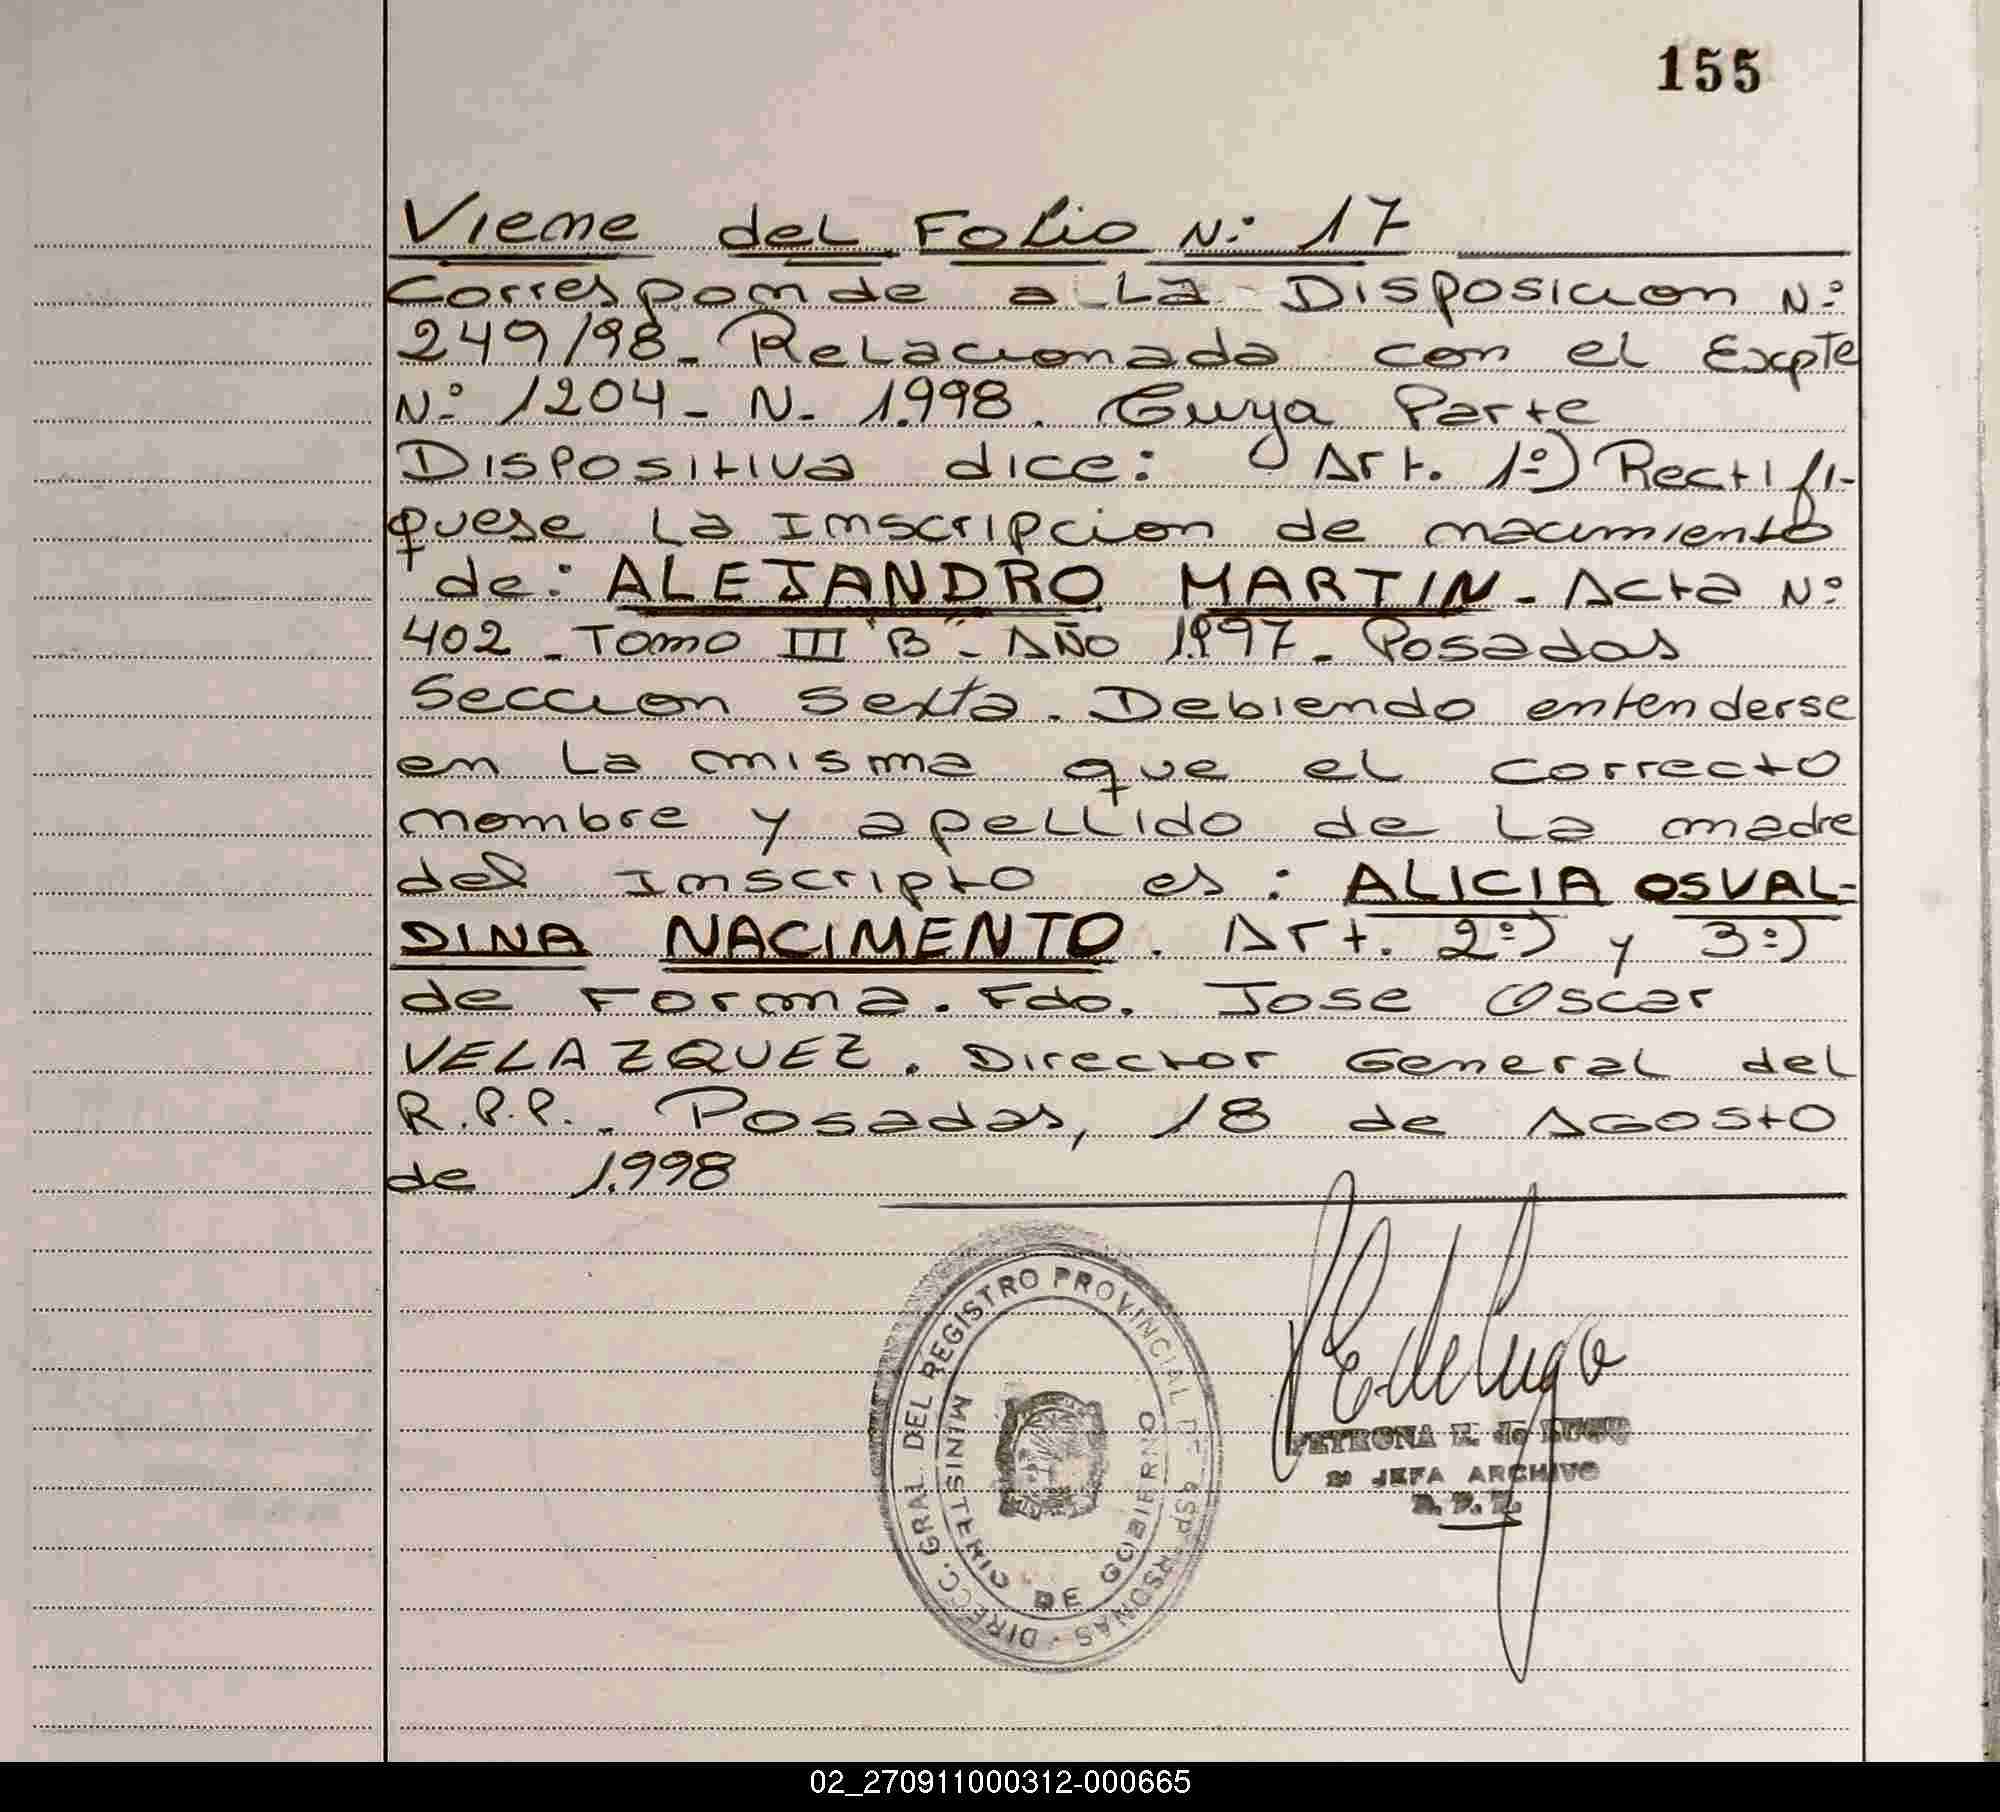 155
Viene del Folio N: 17
Corresponde a La Disposicion N:
249/98. Relacionada con el Expte
N: 1204 - N - 1.998. Cuya Parte
Dispositiva dice: Art. 1º) Rectifi-
quese La Inscripcion de nacimiento
de: ALEJANDRO MARTIN - Acta Nº
402 - Tomo III "B" - AÑO 1.997. Posadas
Seccion Sexta. Debiendo entenderse
en La misma que el correcto
nombre y apellido de La madre
del Inscripto es: ALICIA OSVAL-
DINA NACIMENTO. Art. 2º) y 3º)
de Forma. Fdo. Jose Oscar
VELAZQUEZ. Director General del
R.P.P.. Posadas, 18 de AGOSTO
de 1.998
DIRECC. GRAL. DEL REGISTRO PROVINCIAL DE MISIONES
MINISTERIO DE GOBIERNO
PETRONA E. de LUGO
JEFA ARCHIVO
02_270911000312-000665